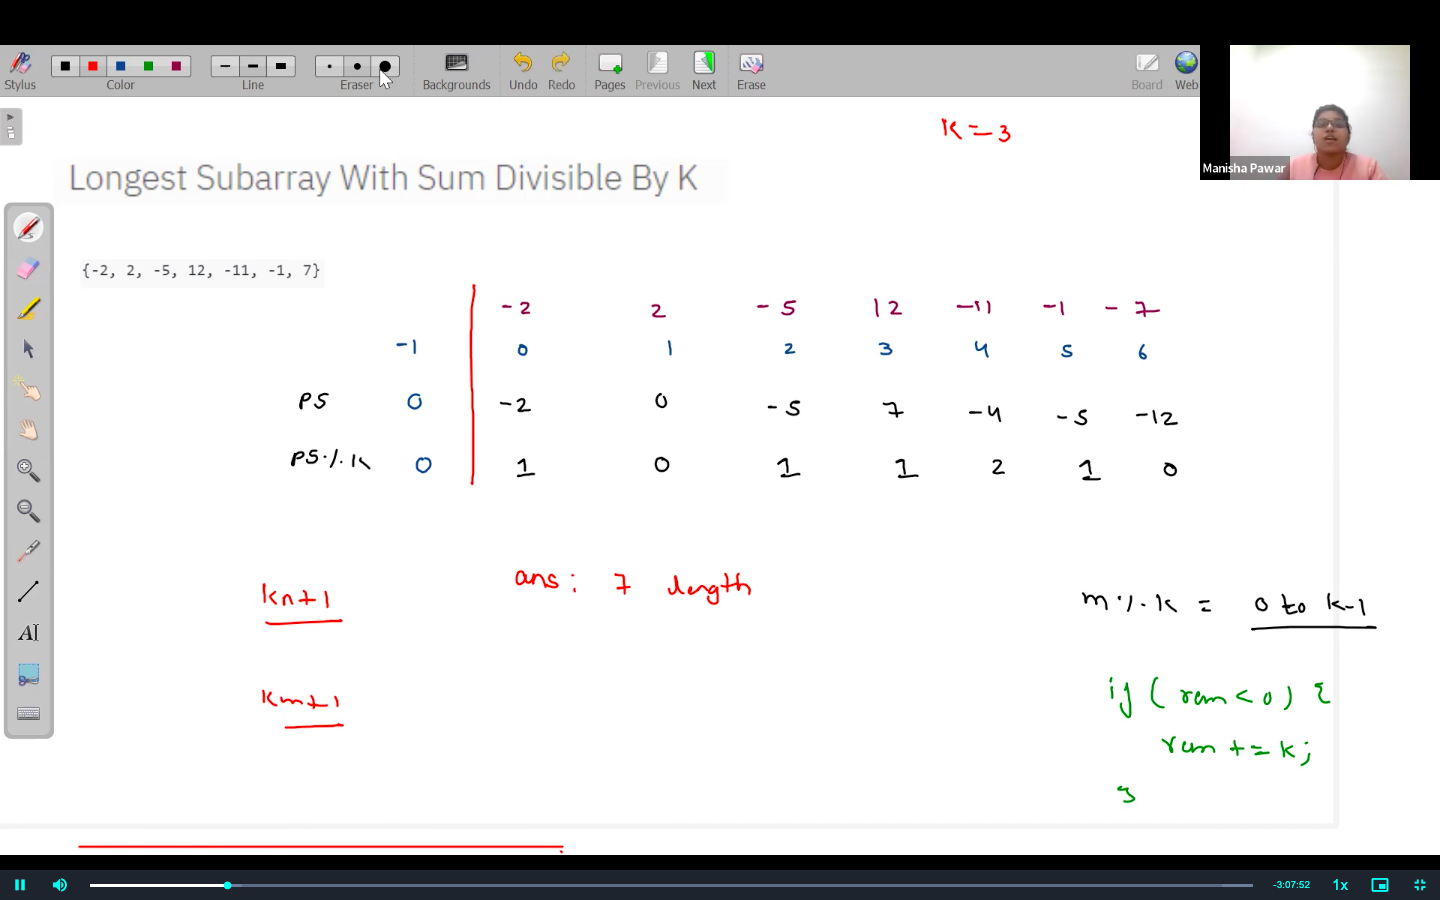 Stylus
Color
Line
Eraser
Backgrounds
Undo
Redo
Pages
Previous
Next
Erase
Board
Web
Manisha Pawar
K = 3
Longest Subarray With Sum Divisible By K
{-2, 2, -5, 12, -11, -1, 7}
-2 2 -5 12 -11 -1 -7
-1 0 1 2 3 4 5 6
PS 0 -2 0 -5 7 -4 -5 -12
PS % K 0 1 0 1 1 2 1 0
kn+1
ans: 7 length
m % K = 0 to K-1
km+1
if (rem < 0) {
rem += K;
}
AI
-3:07:52
1x